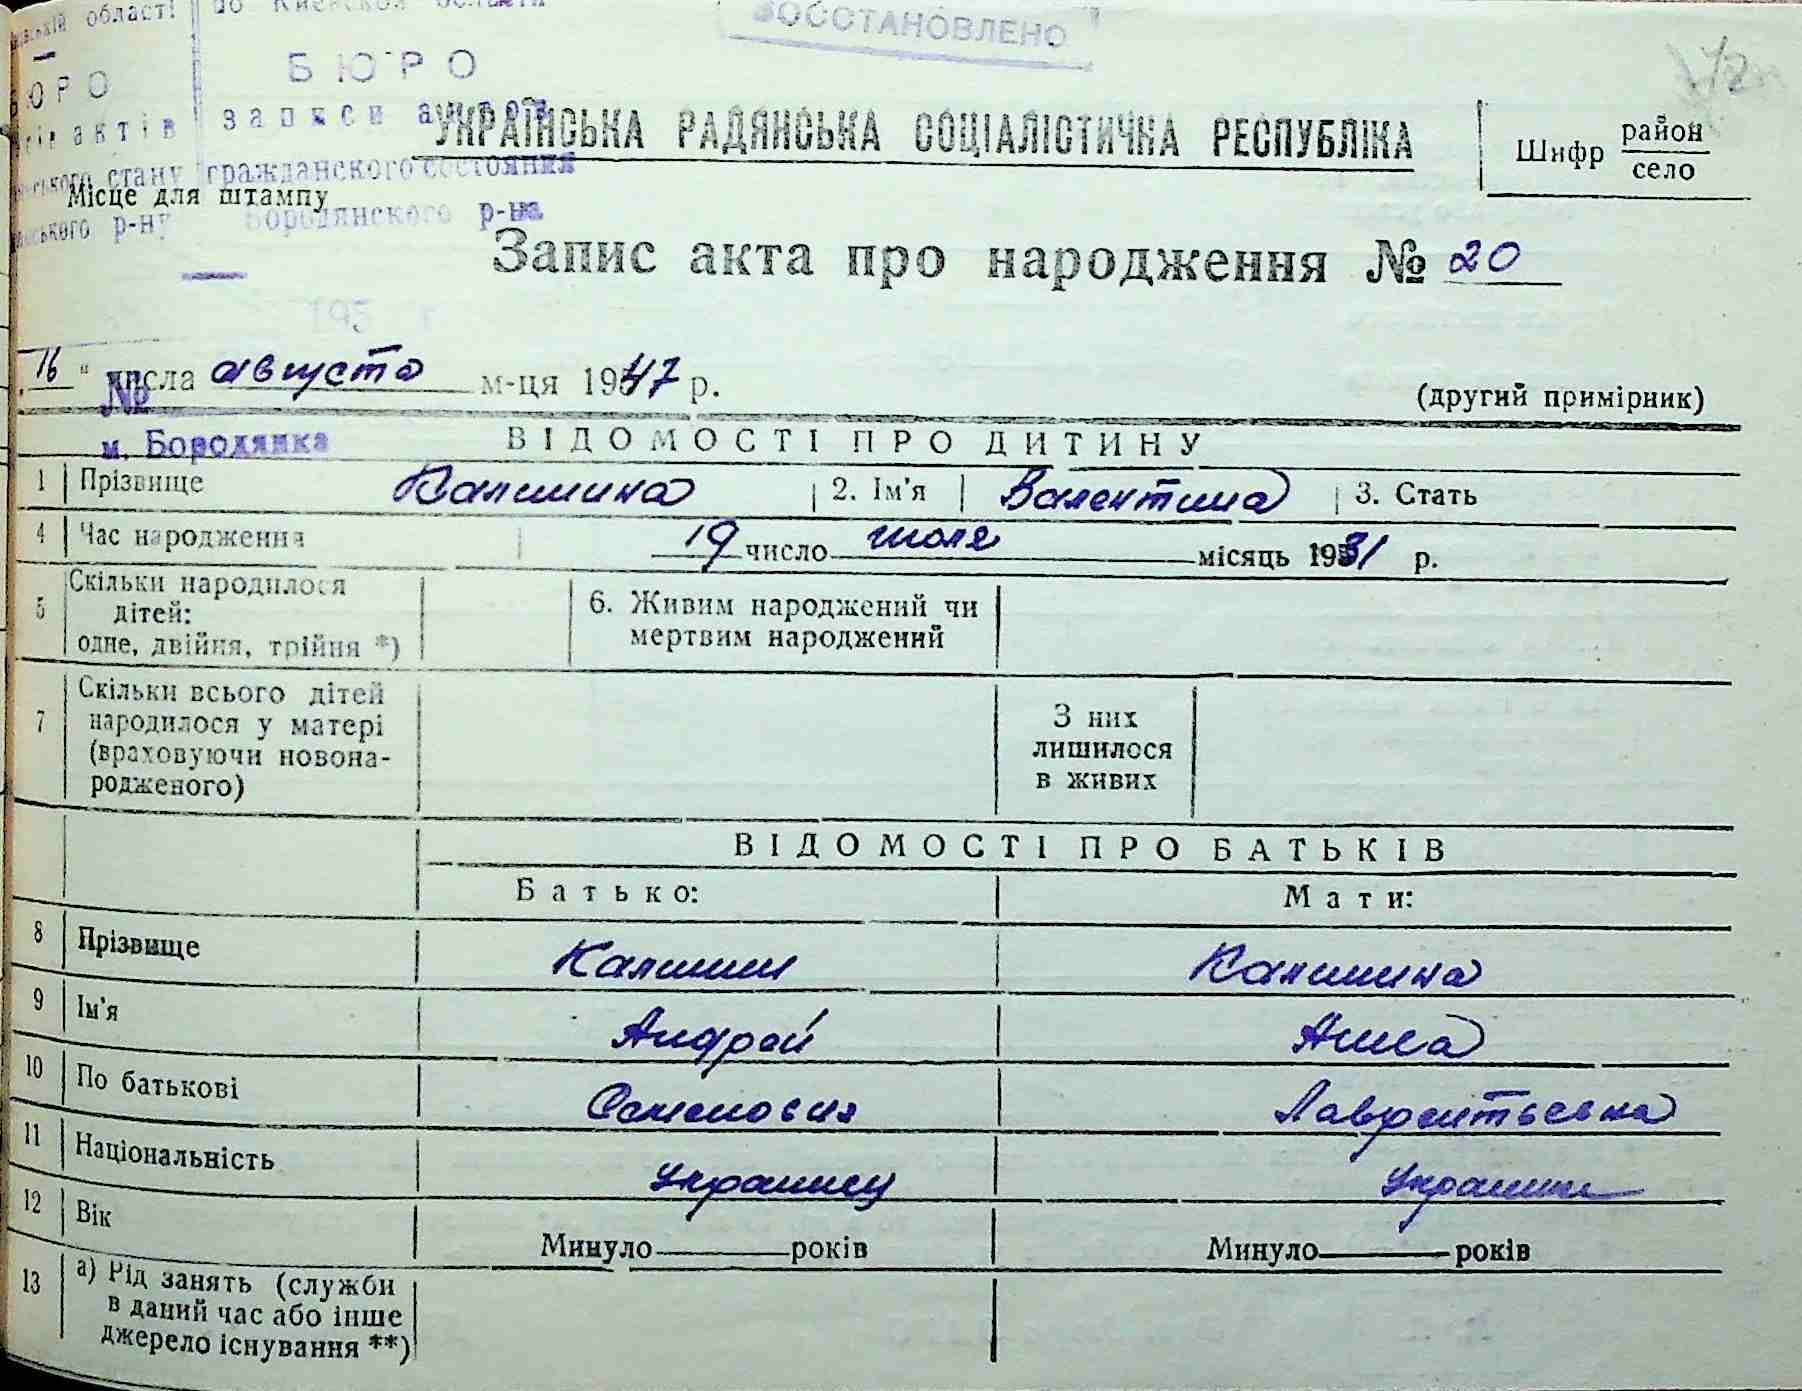 області | по Киевской области
ВОССТАНОВЛЕНО
БЮРО
БЮРО
72
актів | записи актов
УКРАЇНСЬКА РАДЯНСЬКА СОЦІАЛІСТИЧНА РЕСПУБЛІКА
Шифр район
село
стану гражданского состояния
Місце для штампу
р-ну Бородянского р-на
Запис акта про народження № 20
195 г
„16“ числа августа м-ця 1947 р.
№
(другий примірник)
м. Бородянка
ВІДОМОСТІ ПРО ДИТИНУ
1 Прізвище Калинина 2. Ім'я Валентина 3. Стать
4 Час народження 19 число июля місяць 1931 р.
5 Скільки народилося
дітей:
одне, двійня, трійня *)
6. Живим народжений чи
мертвим народжений
7 Скільки всього дітей
народилося у матері
(враховуючи новона-
родженого)
З них
лишилося
в живих
ВІДОМОСТІ ПРО БАТЬКІВ
Батько: Мати:
8 Прізвище Калинин Калинина
9 Ім'я Андрей Анна
10 По батькові Семенович Лаврентьевна
11 Національність Украинец Украинк
12 Вік Минуло років Минуло років
13 а) Рід занять (служби
в даний час або інше
джерело існування **)